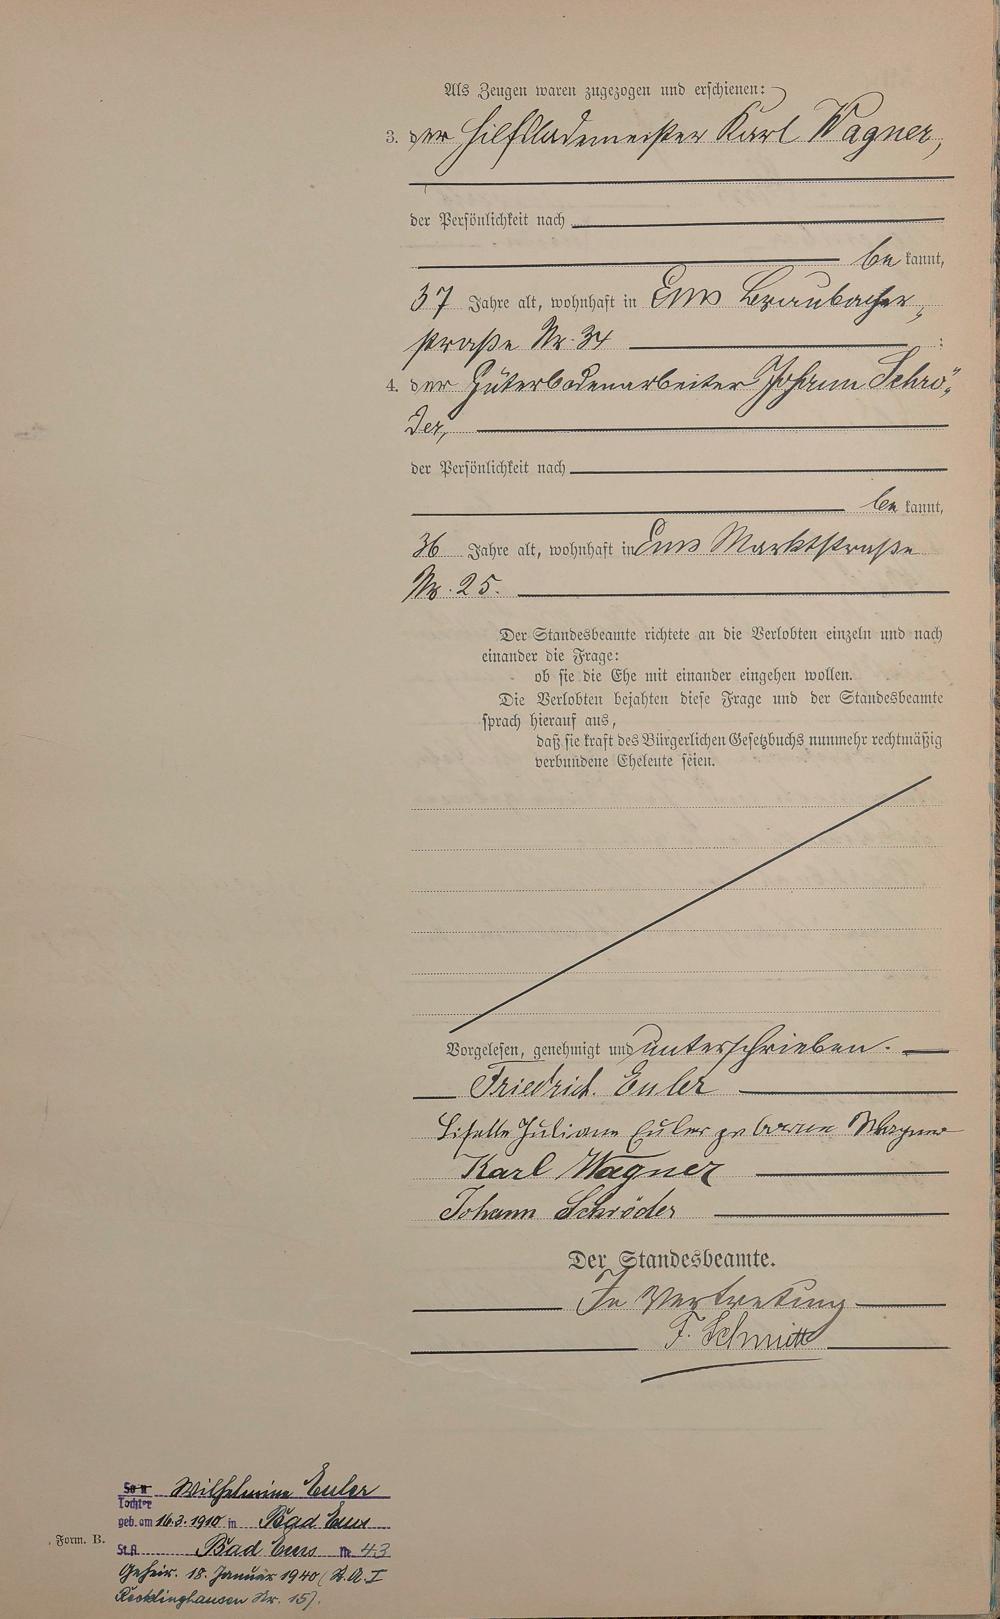 Als Zeugen waren zugezogen und erschienen:
3. der Hilfslademeister Karl Wagner,
der Persönlichkeit nach
be kannt,
37 Jahre alt, wohnhaft in Ems Braubacher-
straße Nr. 34 ;
4. der Güterbodenarbeiter Johann Schrö-
der,
der Persönlichkeit nach
be kannt,
36 Jahre alt, wohnhaft in Ems Marktstraße
Nr. 25.
Der Standesbeamte richtete an die Verlobten einzeln und nach
einander die Frage:
ob sie die Ehe mit einander eingehen wollen.
Die Verlobten bejahten diese Frage und der Standesbeamte
sprach hierauf aus,
daß sie kraft des Bürgerlichen Gesetzbuchs nunmehr rechtmäßig
verbundene Eheleute seien.
Vorgelesen, genehmigt und unterschrieben.
Friedrich. Euler
Juliane Euler geborene Wagner
Karl Wagner
Johann Schröder
Der Standesbeamte.
In Vertretung
F. Schmitt
Sohn Wilhelmine Euler
Tochter
geb. am 16.3.1910 in Bad Ems
Form. B.
St.A. Bad Ems Nr. 43
Geheir. 18. Januar 1940 (St.A. I
Recklinghausen Nr. 15).